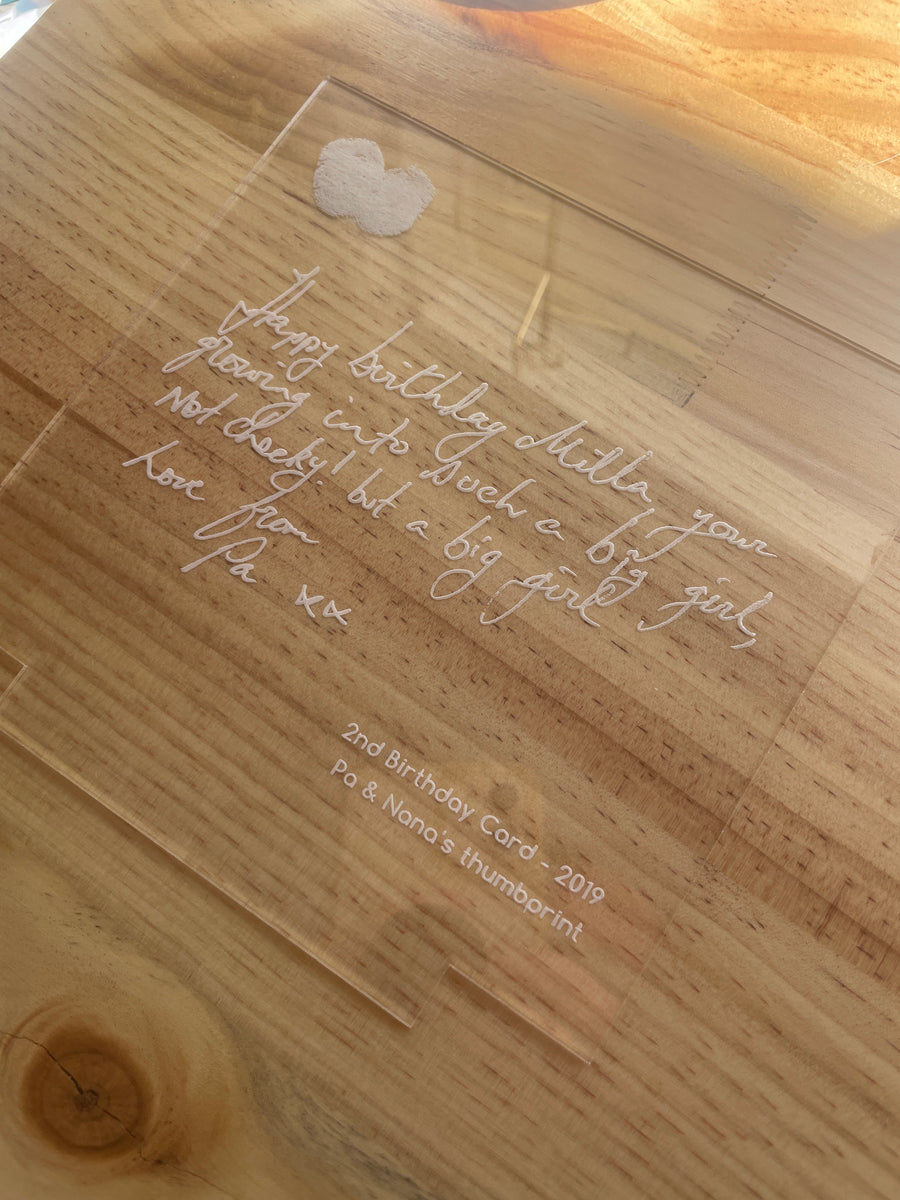 Happy birthday Milla your
growing into such a big girl,
Not cheeky! but a big girl
Love from
Pa xx
2nd Birthday Card - 2019
Pa & Nana's thumbprint